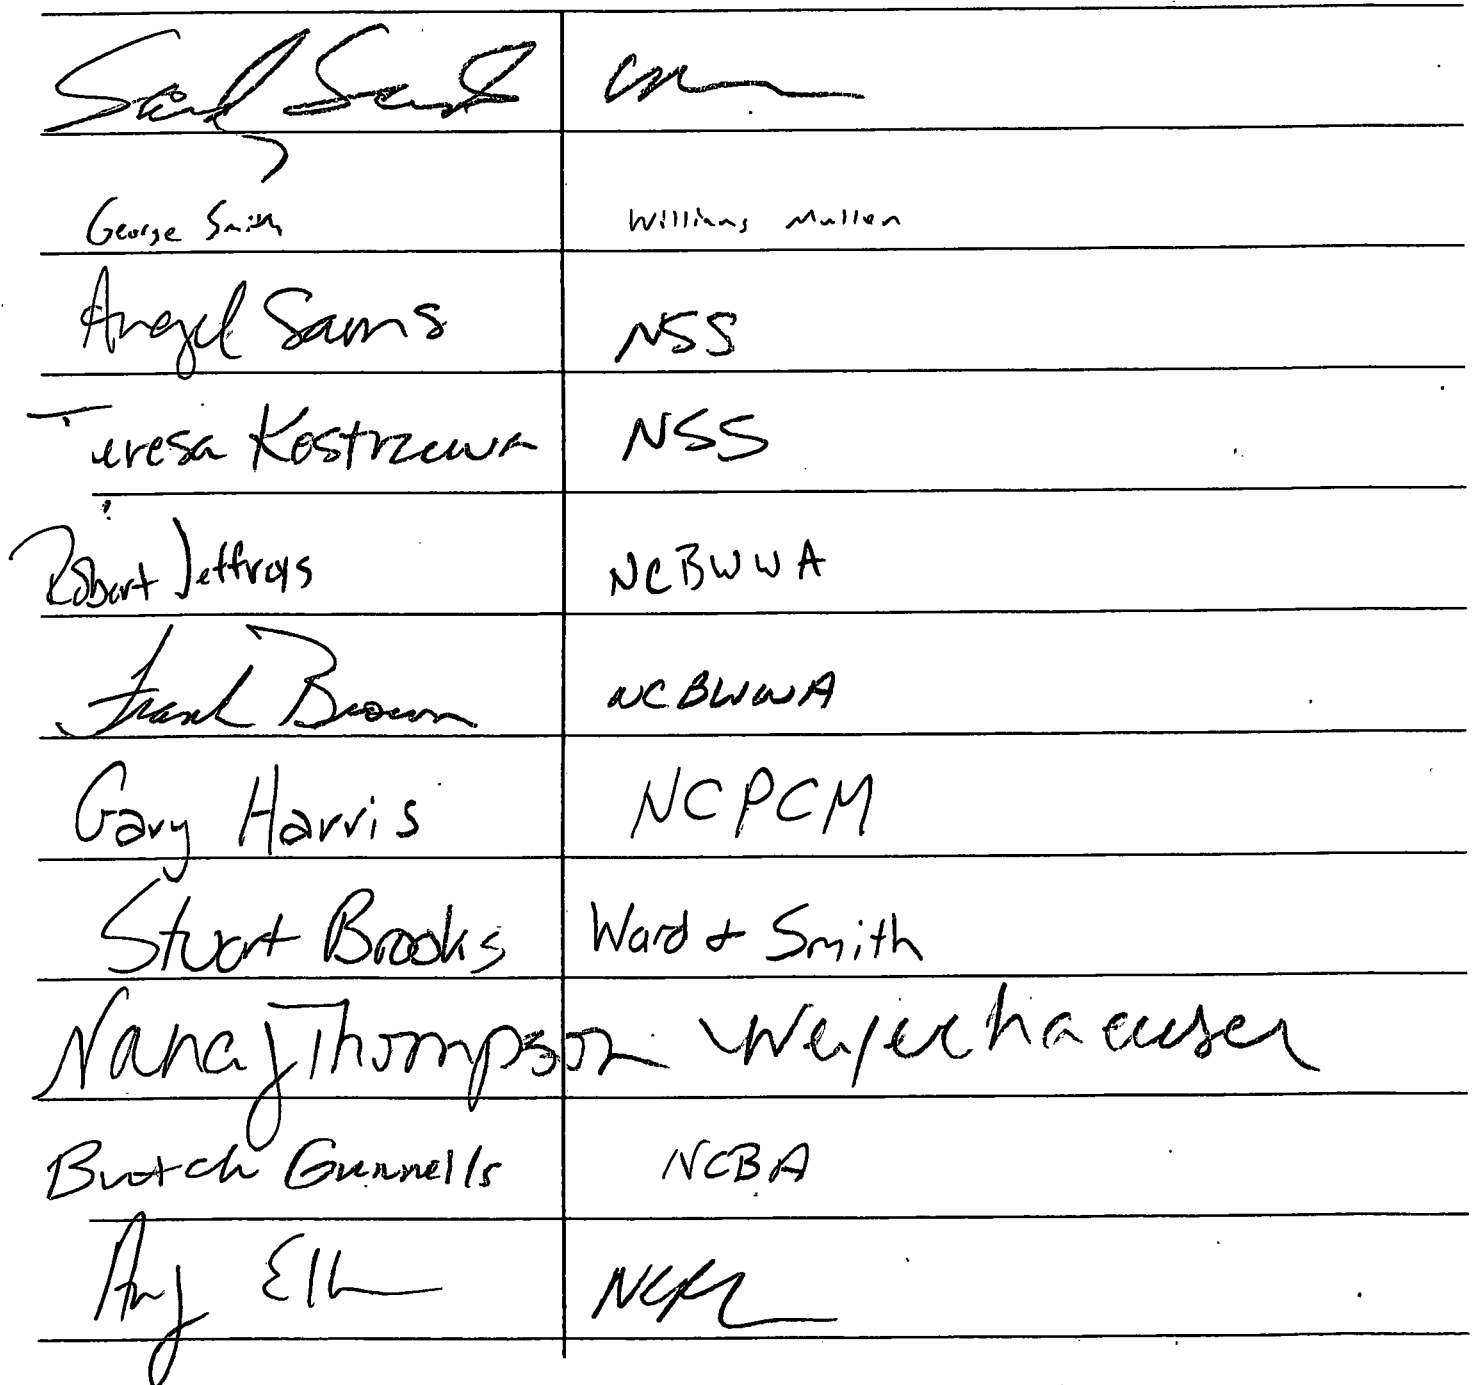 George Smith Williams Mullen
Angel Sams NSS
Teresa Kostrzewa NSS
Robert Jeffreys NCBWWA
Frank Brown NCBWWA
Gary Harris NCPCM
Stuart Brooks Ward & Smith
Nancy Thompson Weyerhaeuser
Butch Gunnells NCBA
Amy